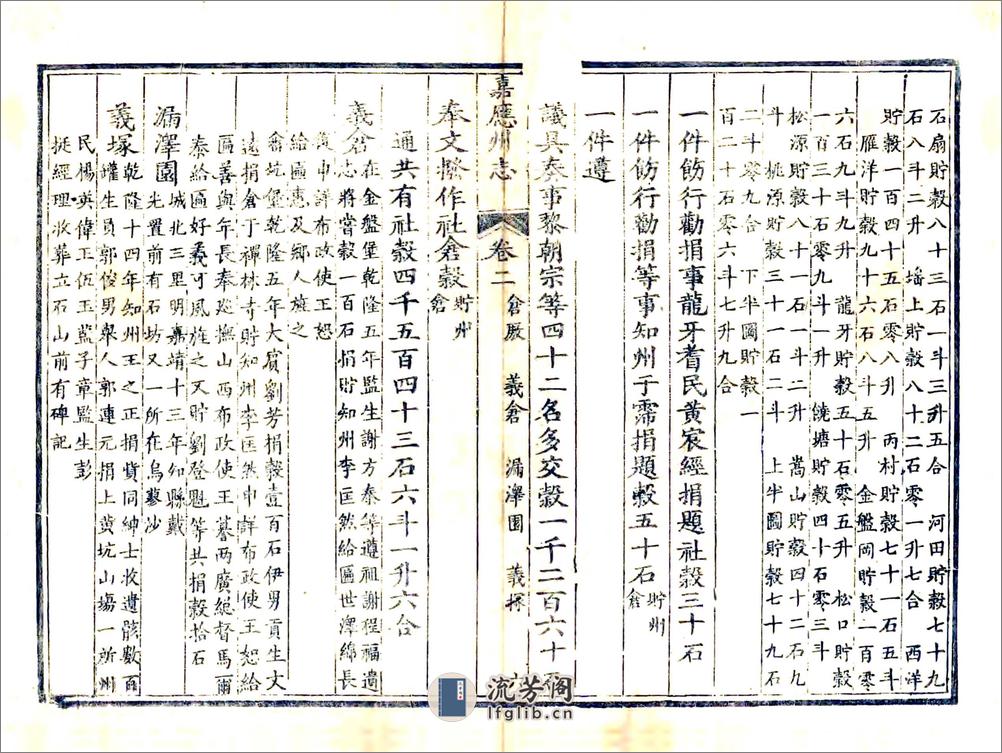 石扇貯穀八十三石一斗三升五合　河田貯穀七十九
石八斗二升　瑶上貯穀八十二石零一升七合　西洋
貯穀一百四十五石零八升　丙村貯穀七十一石五斗
雁洋貯穀九十六石八斗五升　金盤岡貯穀一百零
六石九斗九升　龍牙貯穀五十石零五升　松口貯穀
一百三十石零九斗一升　饒塘貯穀四十石零三斗
松源貯穀八十一石一斗二升　嵩山貯穀四十二石九
斗　桃源貯穀三十一石二斗　上半圖貯穀七十九石
二斗零九合　下半圖貯穀一
百二十石零六斗七升九合
一件飭行勸捐事龍牙耆民黃宸經捐題社穀三十石
一件飭行勸捐等事知州于霈捐題穀五十石貯州倉
一件遵
議具奏事黎朝宗等四十二名多交穀一千二百六十石
嘉應州志　卷二　倉廒　義倉　漏澤園　義塚　六
奉文撥作社倉穀貯州倉
通共有社穀四千五百四十三石六斗一升六合
義倉在金盤堡乾隆五年監生謝方泰等遵祖謝程福遺
志將嘗穀一百石捐貯知州李匡然給區世澤綿長
復申詳布政使王恕
給區惠及鄉人旌之
畬坑堡乾隆五年大賓劉芳捐穀壹百石伊男貢生文
遠捐倉于禪林寺貯知州李匡然申詳布政使王恕給
區善與年長奉巡撫山西布政使王謩兩廣總督馬爾
泰給區好義可風旌之又貯劉登魁等共捐穀拾石
漏澤園城北三里明嘉靖十三年知縣戴
先置前有石坊又一所在烏蓼沙
義塚乾隆十四年知州王之正捐貲同紳士收遺骸數百
罐生員郭俊男舉人郭連元捐上黃坑山塲一所州
民楊英偉王伍玉藍子章監生彭
挺經理收葬立石山前有碑記
流芳閣
lfglib.cn